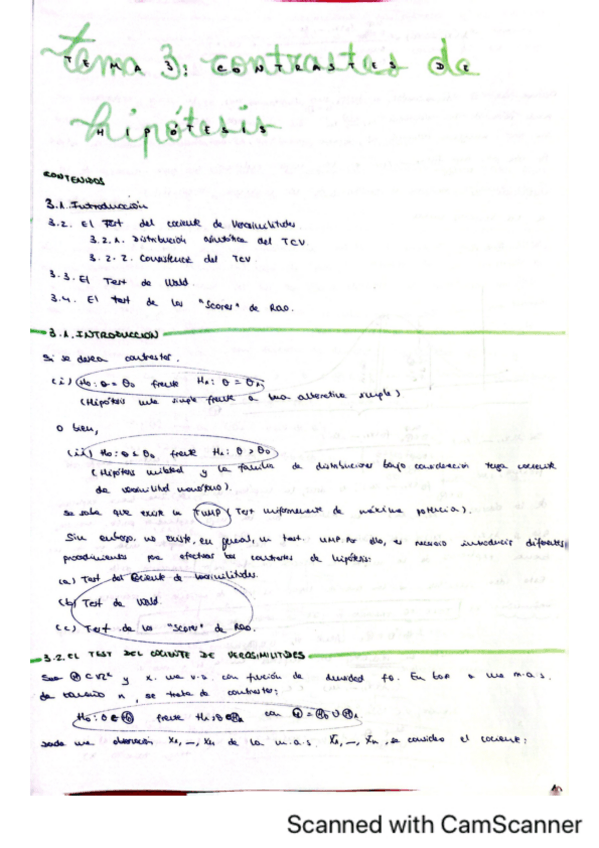 Tema 3: contrastes de
TEMA 3: CONTRASTES DE
hipótesis
HIPÓTESIS
CONTENIDOS
3.1. Introducción
3.2. El Test del cociente de Verosimilitudes
3.2.1. Distribución asintótica del TCV.
3.2.2. Consistencia del TCV.
3.3. El Test de Wald.
3.4. El test de los "Scores" de Rao.
3.1. INTRODUCCIÓN
Si se desea contrastar,
(i) H₀: θ = θ₀ frente H₁: θ = θ₁
(Hipótesis nula simple frente a una alternativa simple)
O bien,
(ii) H₀: θ ≤ θ₀ frente H₁: θ > θ₀
(Hipótesis unilateral y la familia de distribuciones bajo consideración tenga cociente
de verosimilitud monótono).
Se sabe que existe un TUMP (Test uniformemente de máxima potencia).
Sin embargo, no existe, en general, un test UMP. Por ello, es necesario introducir diferentes
procedimientos para efectuar los contrastes de hipótesis:
(a) Test del Cociente de Verosimilitudes.
(b) Test de Wald.
(c) Test de los "Scores" de Rao.
3.2. EL TEST DEL COCIENTE DE VEROSIMILITUDES
Sea Θ ⊂ ℝᵏ y X una v.a. con función de densidad fθ. En base a una m.a.s.
de tamaño n, se trata de contrastar:
H₀: θ ∈ Θ₀ frente H₁: θ ∈ Θ₁ con Θ = Θ₀ ∪ Θ₁
Dada una observación x₁, —, xₙ de la m.a.s. X₁, —, Xₙ, se considera el cociente:
Scanned with CamScanner